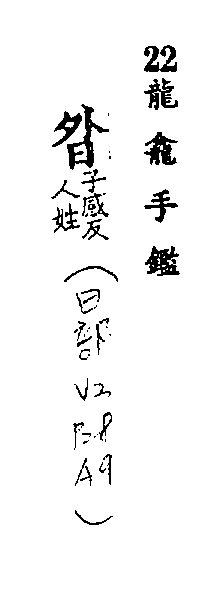 22龍龕手鑑
昝子感反
人姓
(日部
V2
P.8
A9)